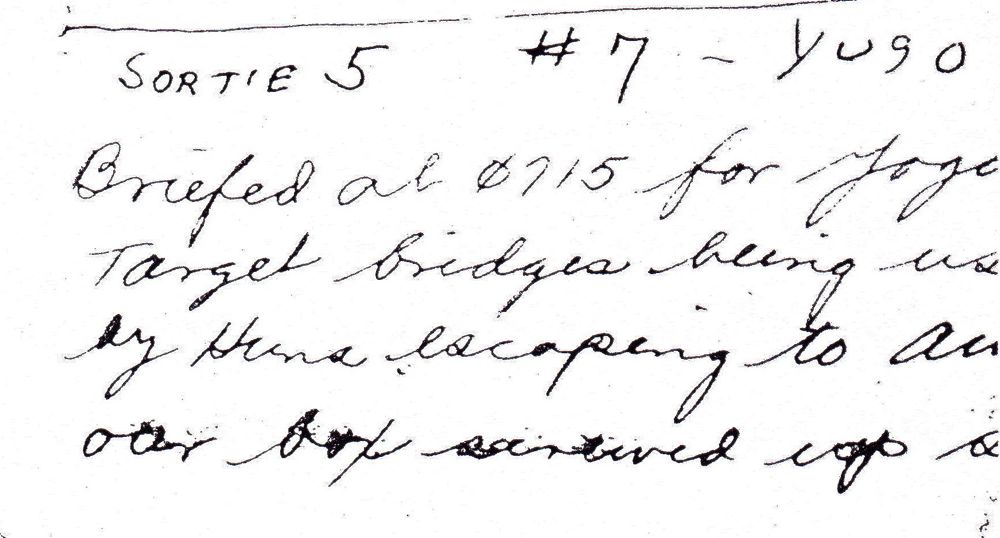 SORTIE 5 #7 - YUGO
Briefed at 0715 for Yogo
Target bridges being us
by Huns escaping to Au
our box screwed up s